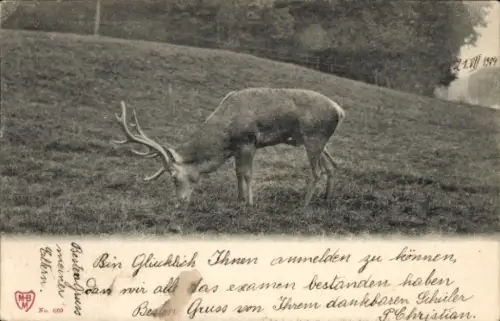 21.VII 1904
Bin Glücklich Ihnen anmelden zu können,
Dan wir alld das examen bestanden haben
Besten Gruss von Ihrem dankbaren Schüler
P. Christian.
Besten Gruss
meiner
Eltern.
MB
No. 660